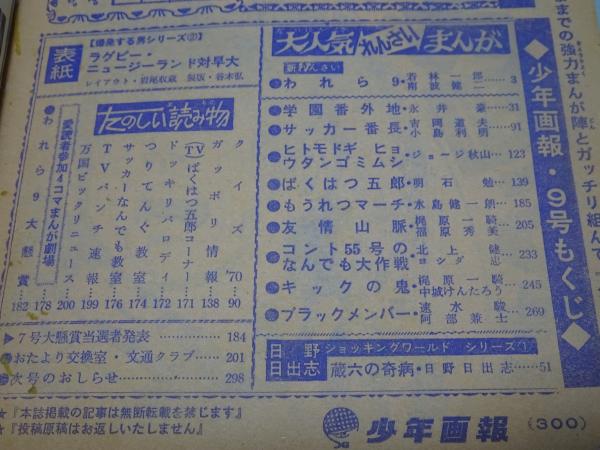 までの強力まんが陣とガッチリ組んで
◆少年画報・9号もくじ◆
大人気れんさいまんが
新れんさい
●われら9・若林一郎 南波健二……3
●学園番外地・永井豪……31
●サッカー番長・吉岡道夫 小島利明……91
●ヒトモドギ ヒョウタンゴミムシ・ジョージ秋山…123
●ばくはつ五郎・明石勉…139
●もうれつマーチ・水島健一朗…185
●友情山脈・梶原一騎 福原秀美…205
●コント55号のなんでも大作戦・北上健 ヨシダ忠…233
●キックの鬼・梶原一騎 中城けんたろう…245
●ブラックメンバー・速水駿 阿部兼士…269
日野日出志 ショッキングワールド シリーズ①
蔵六の奇病・日野日出志……51
表紙
【爆発する男シリーズ②】
ラグビー・
ニュージーランド対早大
レイアウト・岩尾収蔵 製版・谷木弘
たのしい読み物
クイズ'70……90
ガッポリ情報……138
TVばくはつ五郎コーナー…171
ドッキリパロディ……172
つりてんぐ教室……174
サッカーなんでも教室…176
TVパンチ速報……199
万国ビックリニュース……200
愛読者参加4コマまんが劇場……178
●われら9大懸賞……182
▶7号大懸賞当選者発表……184
●おたより交換室・文通クラブ……201
●次号のおしらせ……298
★『本誌掲載の記事は無断転載を禁じます』
★『投稿原稿はお返しいたしません』
少年画報
(300)